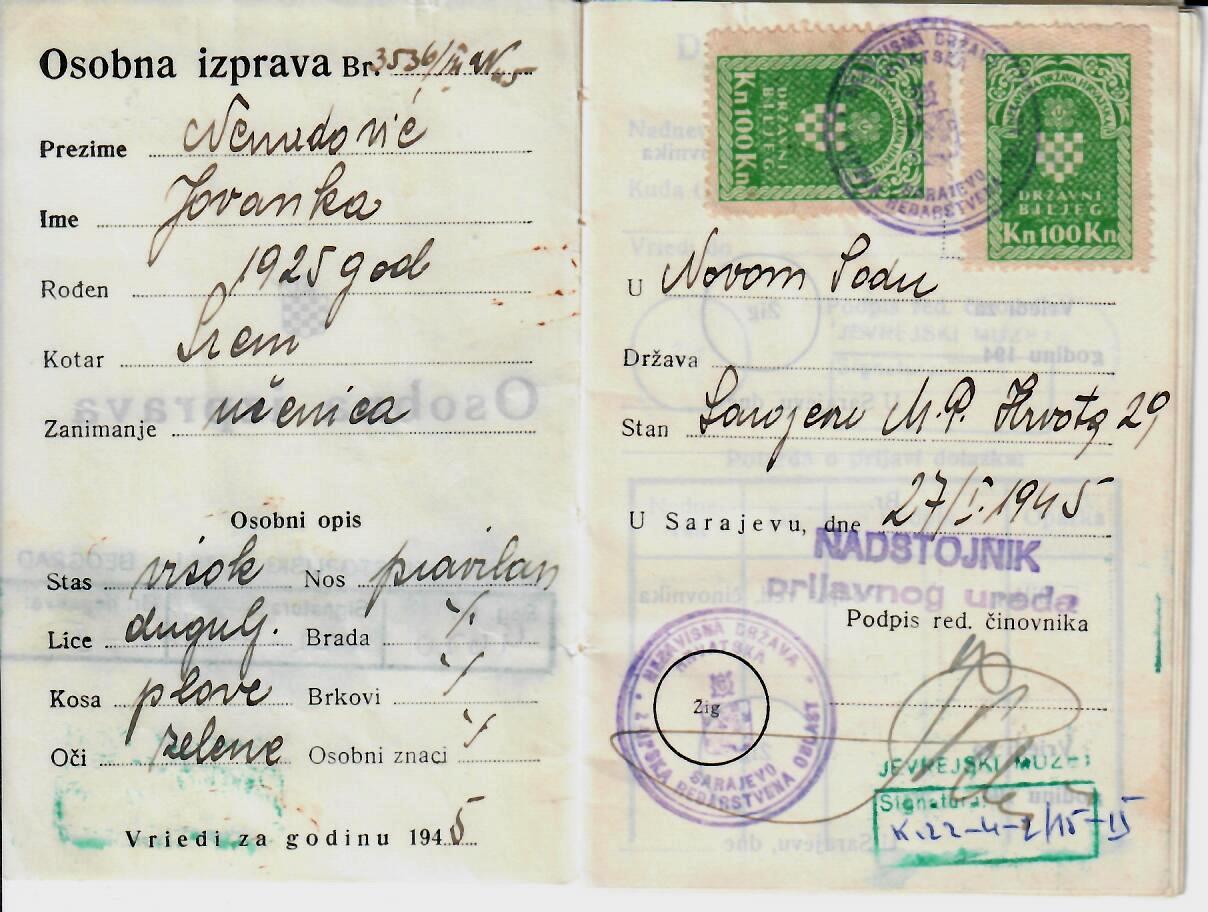 Osobna izprava Br. 3536/III 1945
Prezime
Ime Jovanka
Rođen 1925 god
Kotar Srem
Zanimanje učenica
Osobni opis
Stas visok Nos pravilan
Lice dugulj. Brada ·/.
Kosa plove Brkovi ·/.
Oči zelene Osobni znaci ·/.
Vriedi za godinu 1945
Kn100Kn
DRŽAVNI
BILJEG
NEZAVISNA DRŽAVA HRVATSKA
SARAJEVO
REDARSTVENA
NEZAVISNA DRŽAVA HRVATSKA
DRŽAVNI
BILJEG
Kn100Kn
U Novom Sadu
Država
Stan Sarajevo M. P. Hrvata 29
U Sarajevu, dne 27/I. 1945
NADSTOJNIK
prijavnog ureda
Podpis red. činovnika
NEZAVISNA DRŽAVA HRVATSKA
Žig
SARAJEVO
ŽUPSKA REDARSTVENA OBLAST
JEVREJSKI MUZEJ
Signatura:
K.22-4-2/15-II